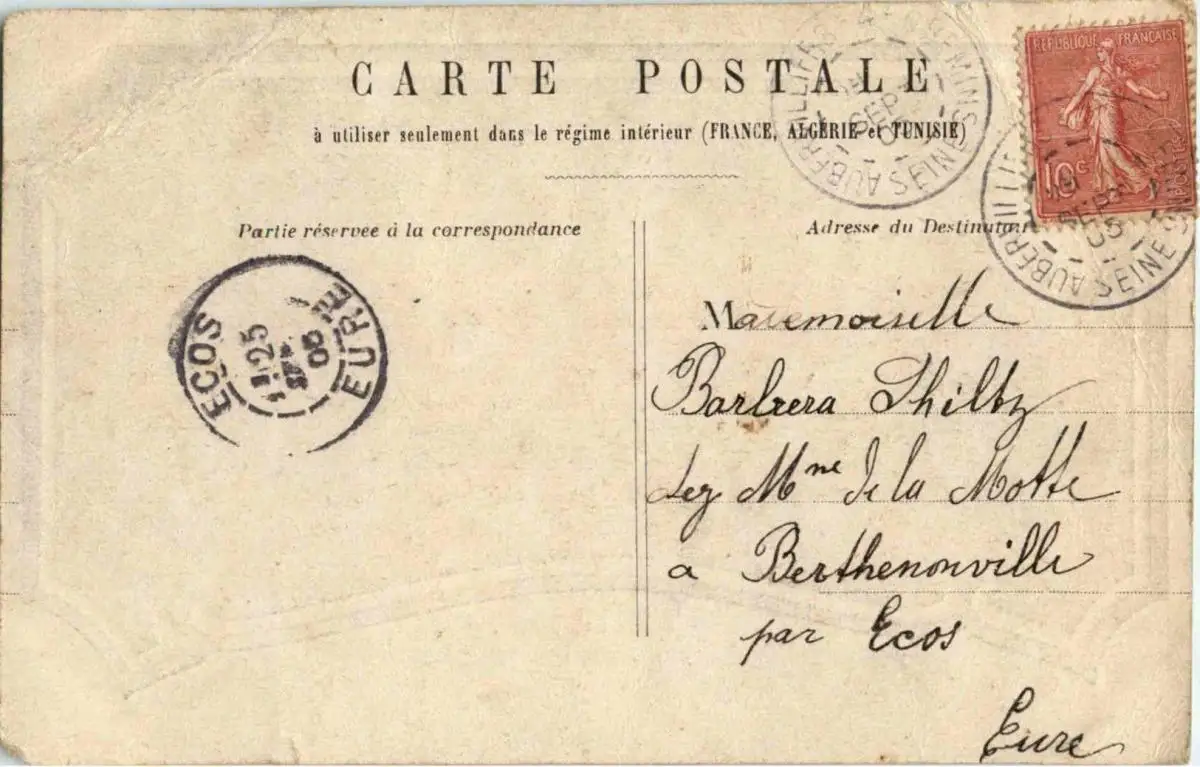 CARTE POSTALE
à utiliser seulement dans le régime intérieur (FRANCE, ALGÉRIE et TUNISIE)
RÉPUBLIQUE FRANÇAISE
10c
POSTES
AUBERVILLIERS SEINE
SEPT
05
AUBERVILLIERS SEINE
SEPT
05
Partie réservée à la correspondance
Adresse du Destinataire
ECOS EURE
25
05
Mademoiselle
Barbera Philtz
Leg Mme de la Motte
a Berthenonville
par Ecos
Eure